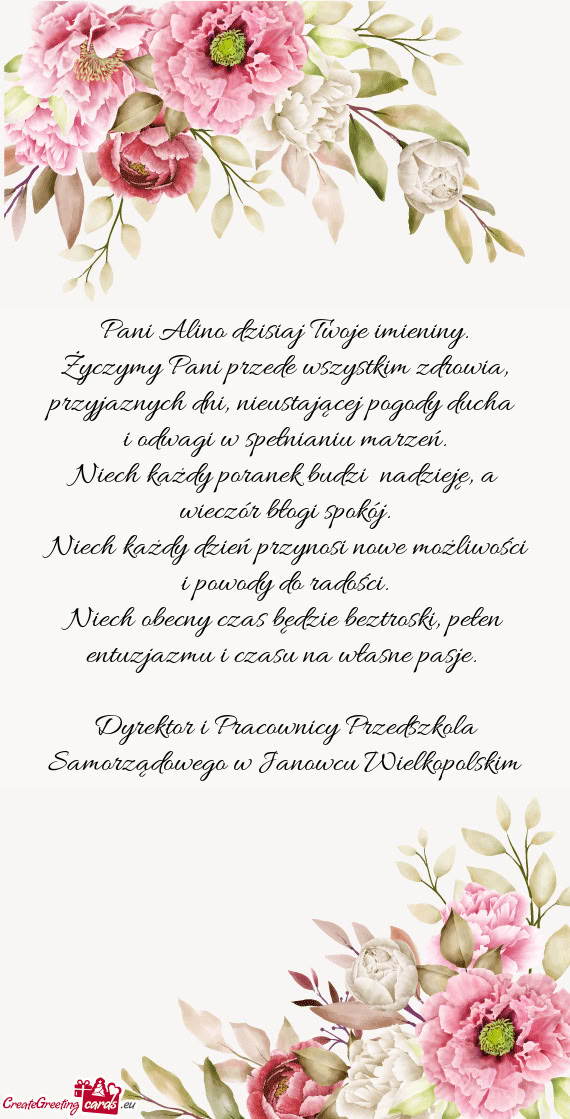 Pani Alino dzisiaj Twoje imieniny.
Życzymy Pani przede wszystkim zdrowia,
przyjaznych dni, nieustającej pogody ducha
i odwagi w spełnianiu marzeń.
Niech każdy poranek budzi nadzieję, a
wieczór błogi spokój.
Niech każdy dzień przynosi nowe możliwości
i powody do radości.
Niech obecny czas będzie beztroski, pełen
entuzjazmu i czasu na własne pasje.
Dyrektor i Pracownicy Przedszkola
Samorządowego w Janowcu Wielkopolskim
CreateGreeting cards .eu